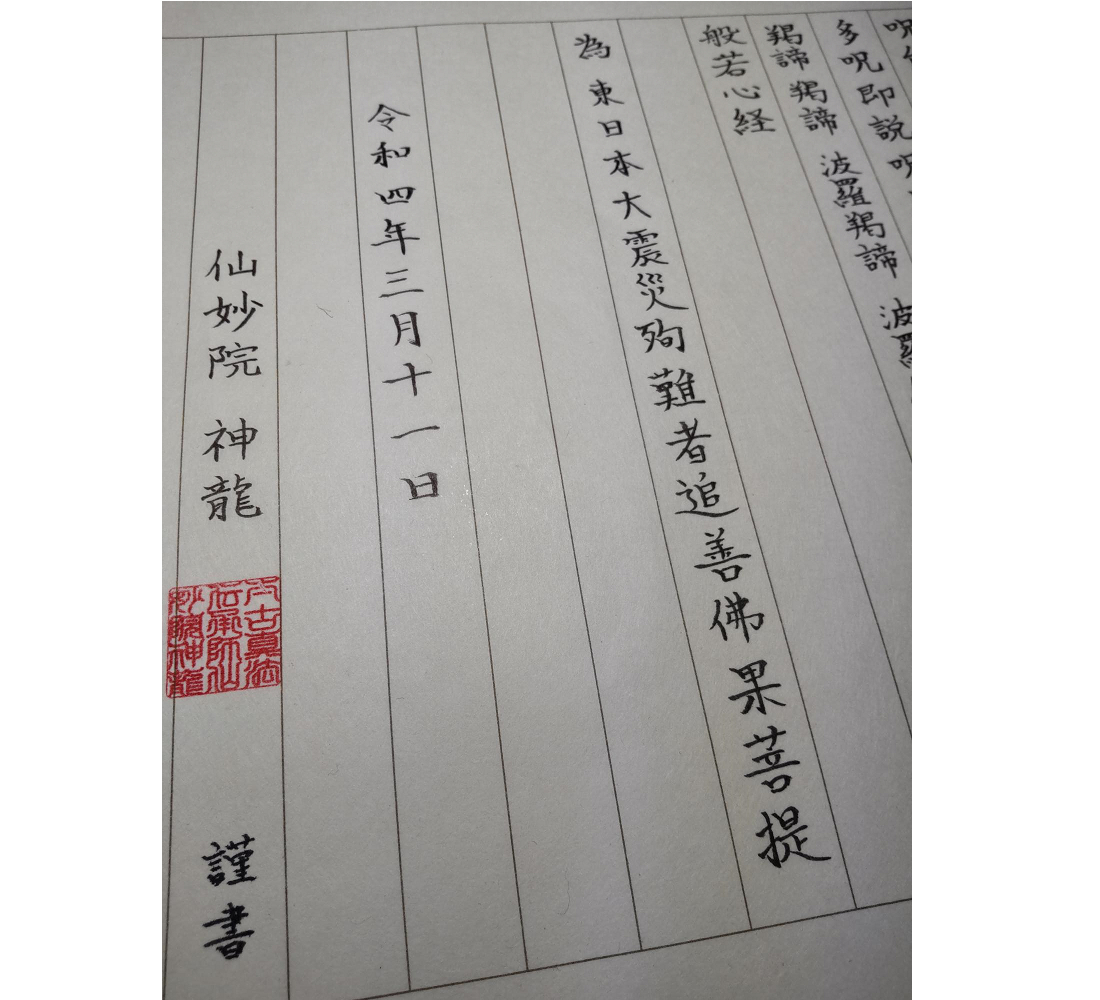 多呪即説呪
羯諦羯諦 波羅羯諦 波羅
般若心経
為東日本大震災殉難者追善佛果菩提
令和四年三月十一日
仙妙院 神龍 謹書